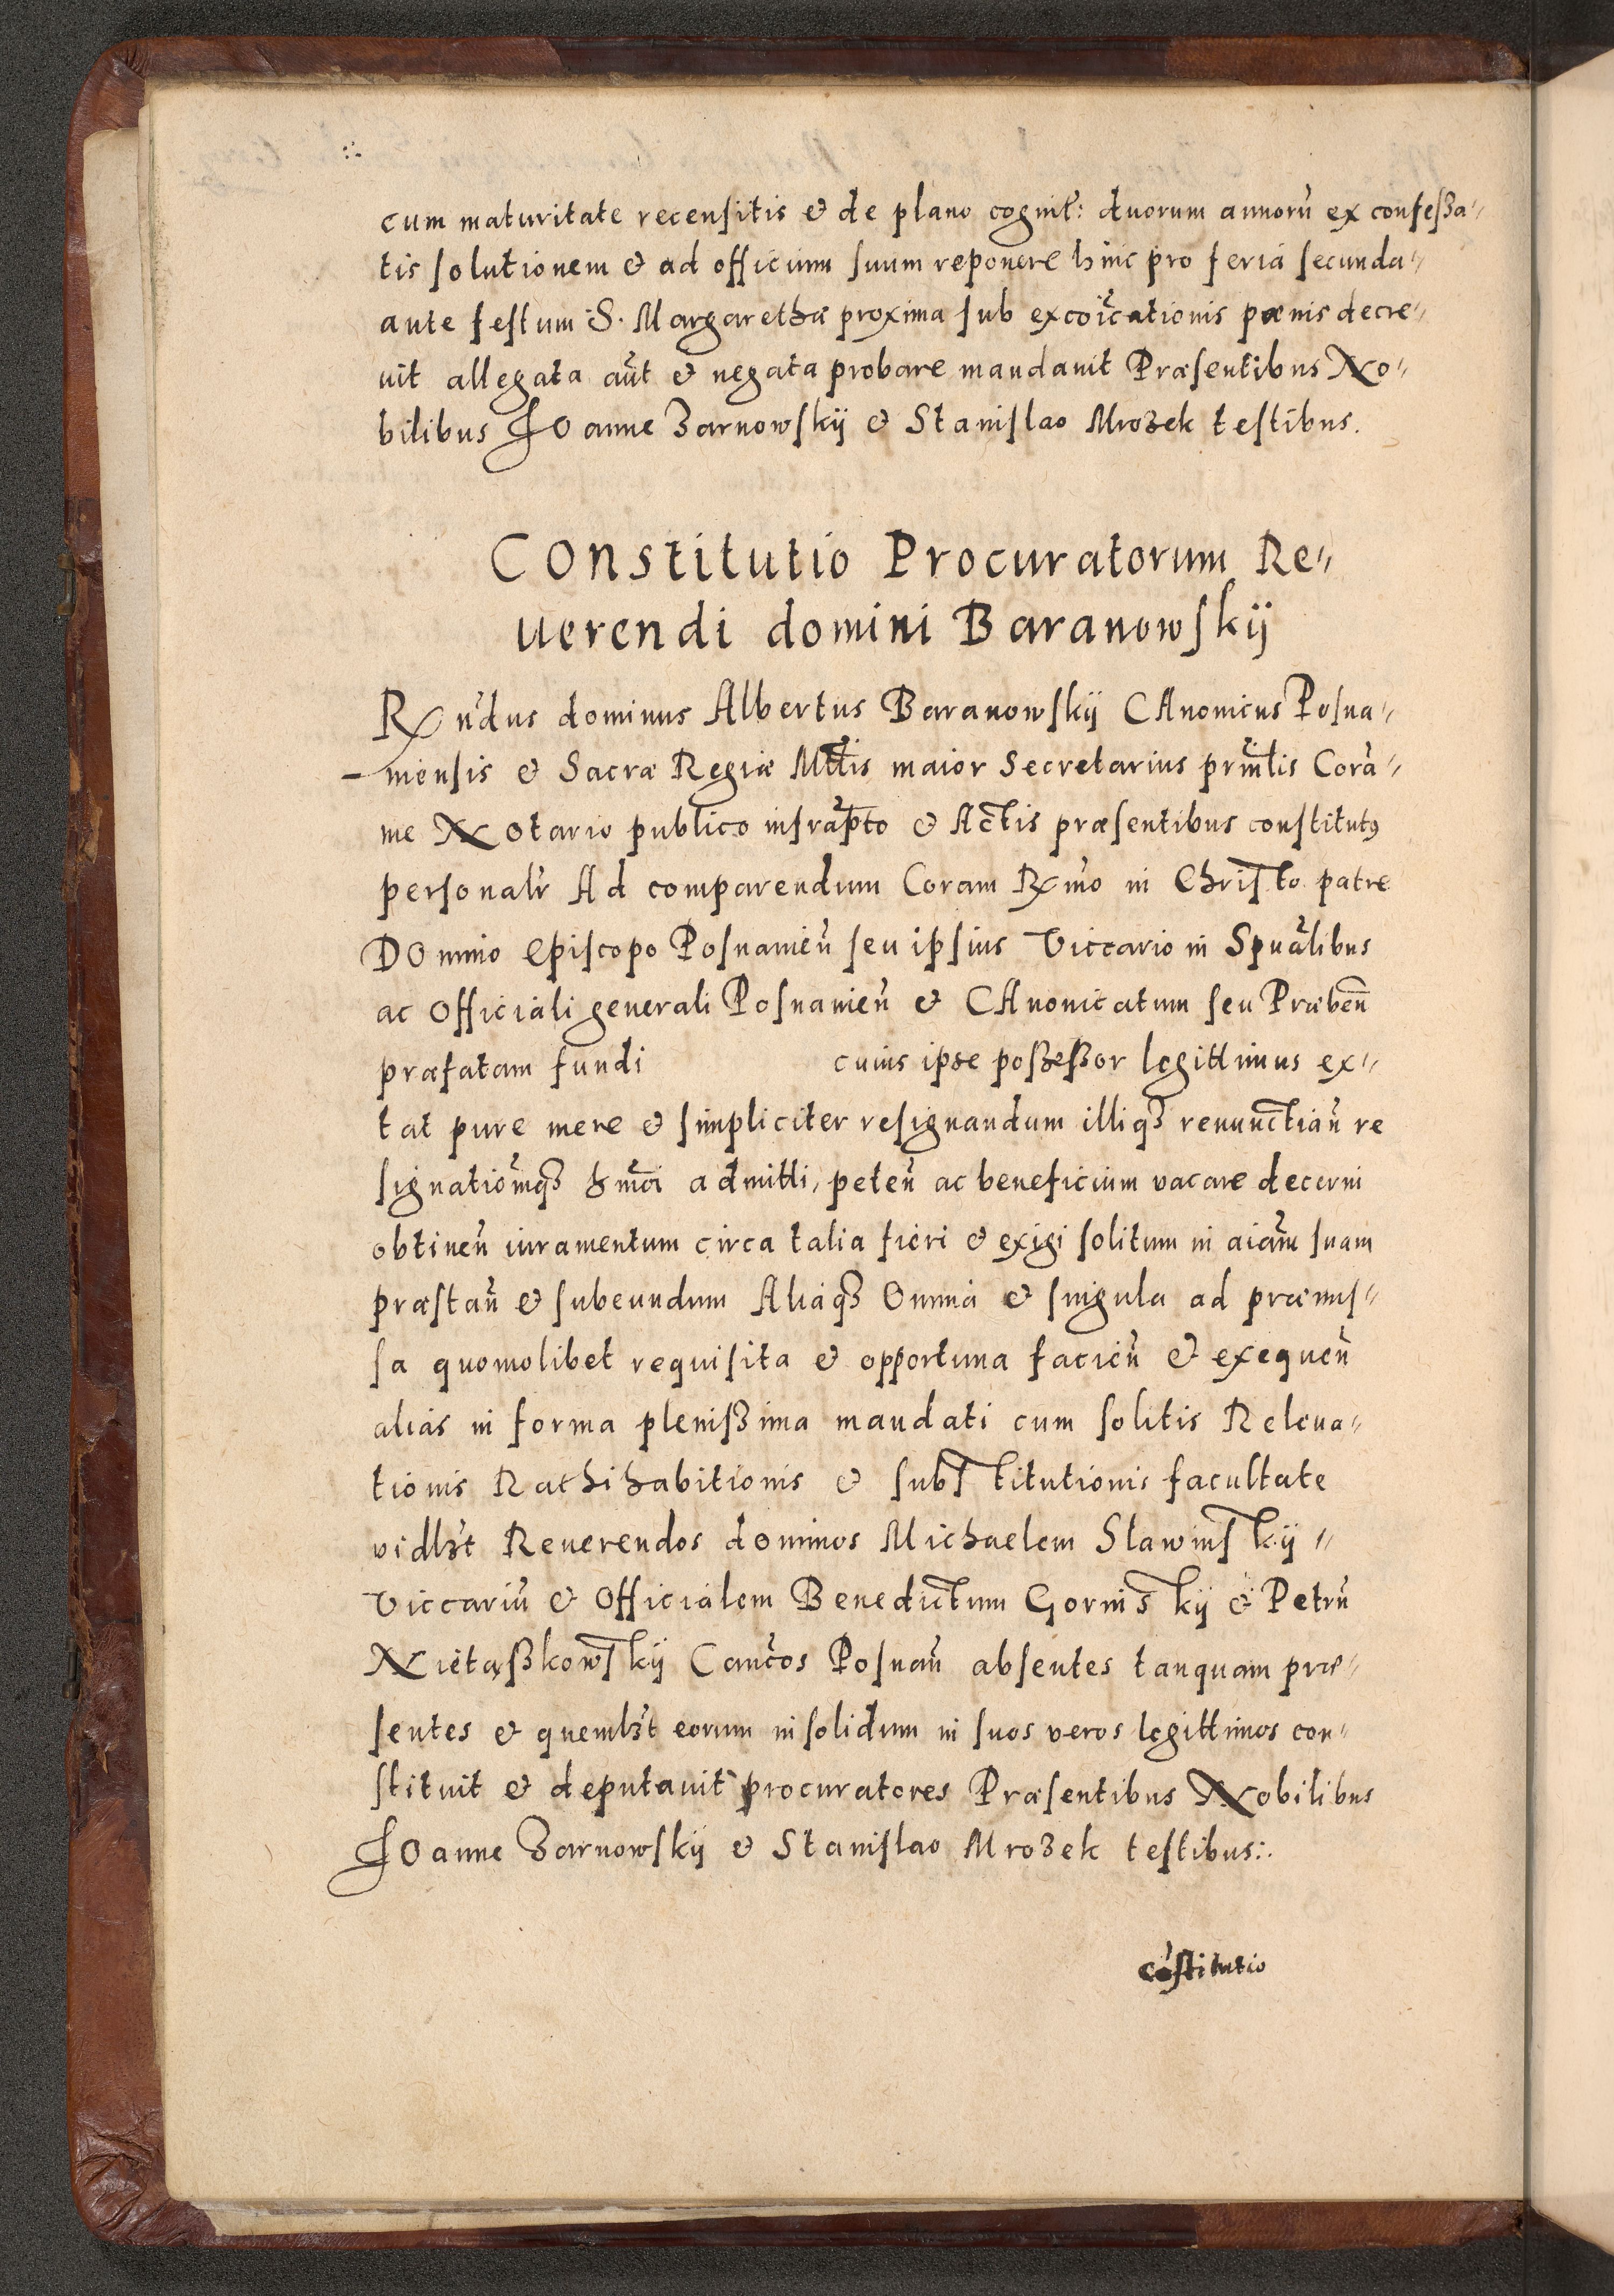 cum maturitate recensitis & de plano cognit̃: duorum annorũ ex confessa〃
tis solutionem & ad officium suum reponere hinc pro feria secunda〃
ante festum S. Margarethæ proxima sub excoĩcationis pænis decre〃
uit allegata aũt & negata probare mandauit Præsentibus No〃
bilibus IOanne Zarnowskÿ & Stanislao Mrozek testibus.
COnstitutio Procuratorum Re〃
uerendi domini Baranowskÿ
Rn̄dus dominus Albertus Baranowskÿ CAnonicus Posna〃
niensis & Sacræ Regiæ Mttis maior Secretarius prĩnlis Corã〃
me NOtario publico infrapto & Actis præsentibus constitutꝰ
personalr̃ Ad comparendum Coram Rm̃o in Christo patre
DOmino Episcopo Posnanień seu ipsius Viccario in Spũalibus
ac Officiali generali Posnanień & CAnonicatum seu Præbeñ
præfatam fundi cuius ipse possessor legittimus ex〃
tat pure mere & simpliciter resignandum illiqꝫ renunctiañ re
signatiom̃qꝫ hm̃oi admitti, peteñ ac beneficium vacare decerni
obtineñ iuramentum circa talia fieri & exigi solitum in aiam̃ suam
præstañ & subeundum Aliaqꝫ Omnia & singula ad præmis〃
sa quomolibet requisita & opportuna facień & exequeñ
alias in forma plenissima mandati cum solitis Releua〃
tionis Rathihabitionis & substitutionis facultate
vidlꝫt Reuerendos dominos Michaelem Slawinskÿ〃
Viccariũ & Officialem Benedictum Gorinskÿ & Petrũ
Nietasskowskÿ Cancõs Posnañ absentes tanquam præ〃
sentes & quemlꝫt eorum in solidum in suos veros legittimos con〃
stituit & deputauit procuratores Præsentibus Nobilibus
IOanne Zarnowskÿ & Stanislao Mrozek testibus:.
cõstitutio